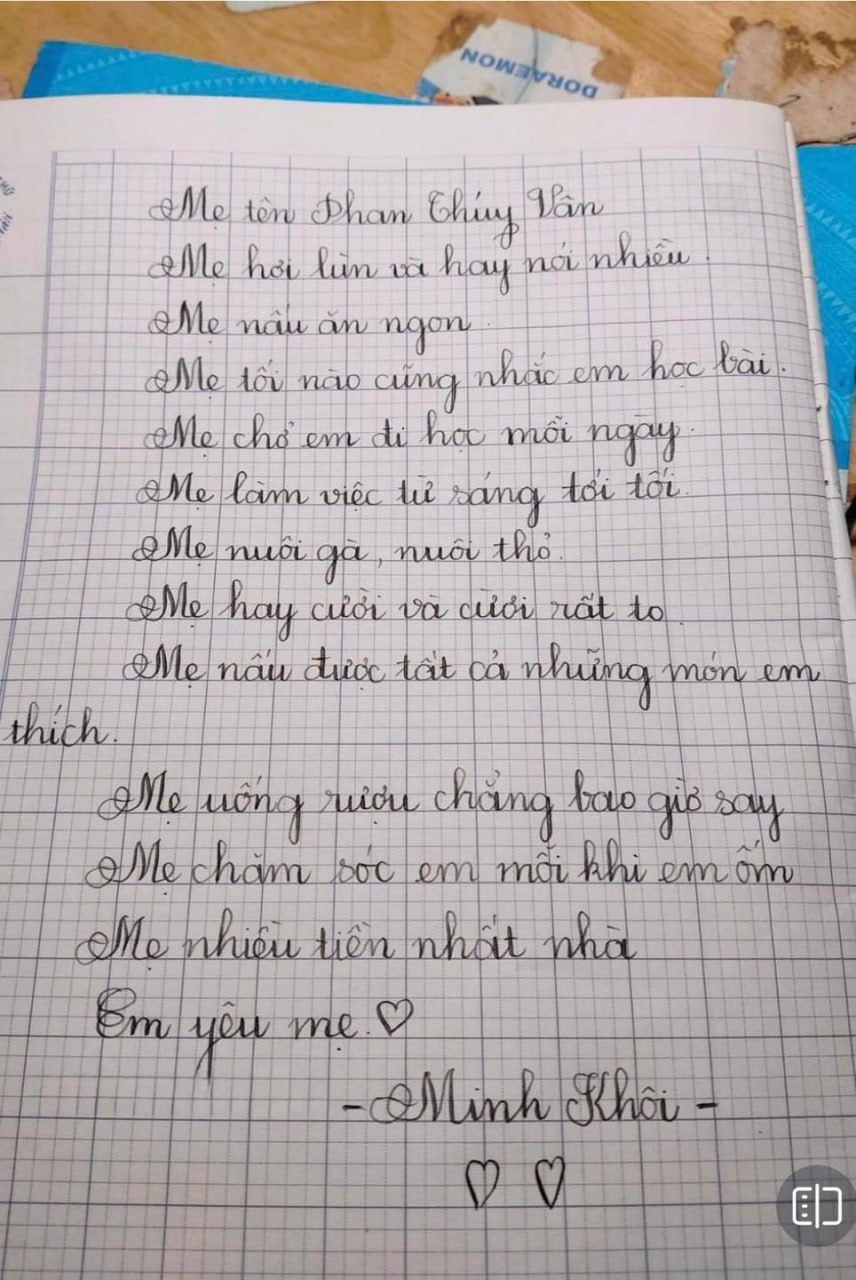 DORAEMON
Mẹ tên Phan Thúy Vân
Mẹ hơi lùn và hay nói nhiều.
Mẹ nấu ăn ngon.
Mẹ tối nào cũng nhắc em học bài.
Mẹ chở em đi học mỗi ngày.
Mẹ làm việc từ sáng tới tối.
Mẹ nuôi gà, nuôi thỏ.
Mẹ hay cười và cười rất to.
Mẹ nấu được tất cả những món em
thích.
Mẹ uống rượu chẳng bao giờ say
Mẹ chăm sóc em mỗi khi em ốm
Mẹ nhiều tiền nhất nhà
Em yêu mẹ.♡
- Minh Khôi -
♡ ♡